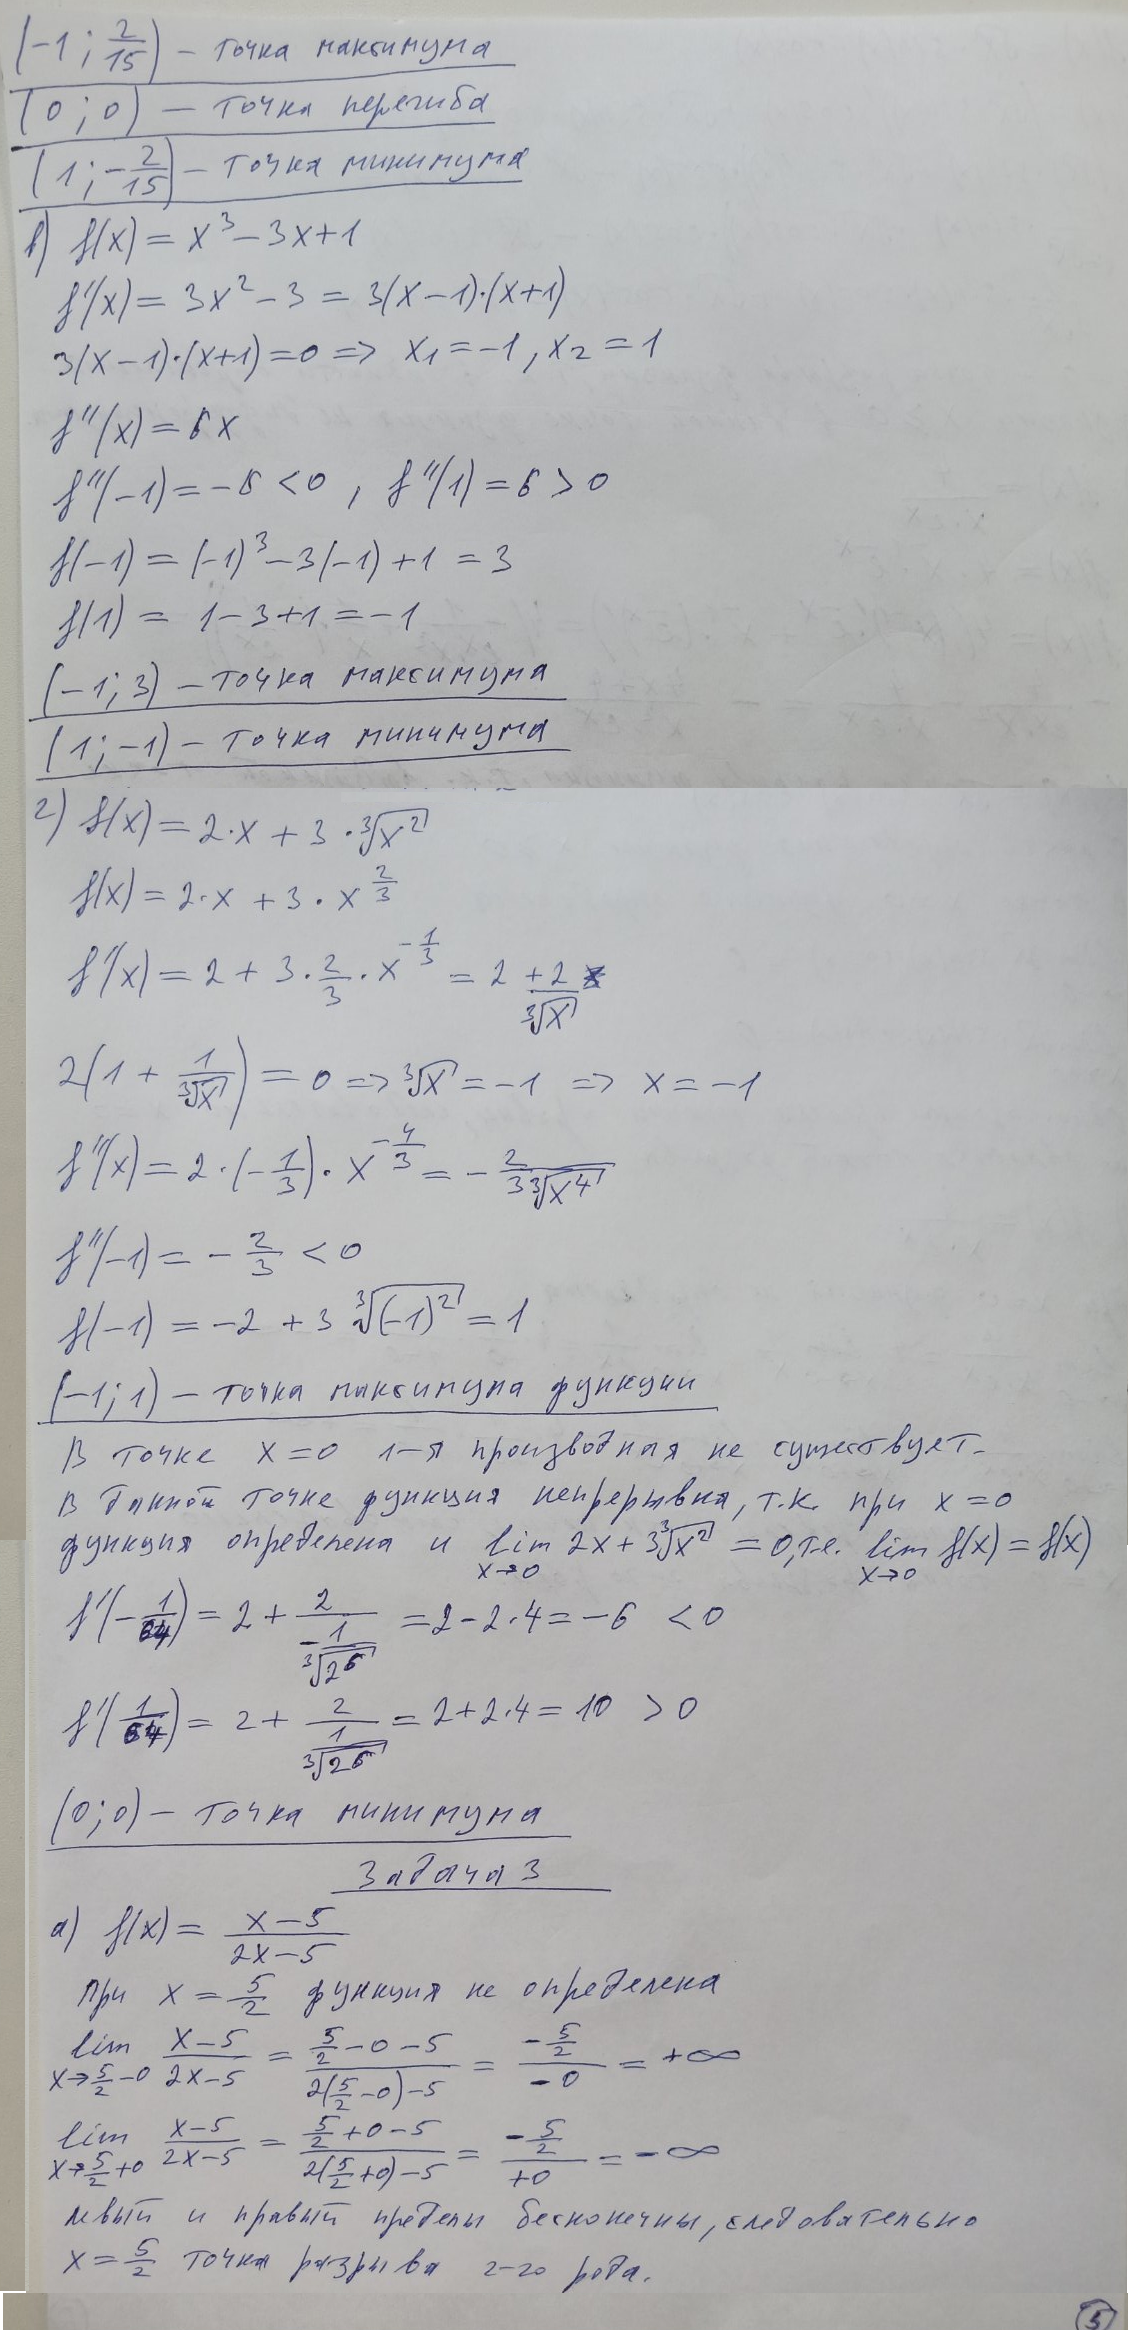 (-1; 2/15) - точка максимума
(0; 0) - точка перегиба
(1; -2/15) - точка минимума
в) f(x) = x³ - 3x + 1
f'(x) = 3x² - 3 = 3(x - 1)·(x + 1)
3(x - 1)·(x + 1) = 0 => x₁ = -1, x₂ = 1
f''(x) = 6x
f''(-1) = -6 < 0, f''(1) = 6 > 0
f(-1) = (-1)³ - 3(-1) + 1 = 3
f(1) = 1 - 3 + 1 = -1
(-1; 3) - точка максимума
(1; -1) - точка минимума
г) f(x) = 2·x + 3·∛x²
f(x) = 2·x + 3·x^(2/3)
f'(x) = 2 + 3·2/3·x^(-1/3) = 2 + 2/∛x
2(1 + 1/∛x) = 0 => ∛x = -1 => x = -1
f''(x) = 2·(-1/3)·x^(-4/3) = -2/(3∛x⁴)
f''(-1) = -2/3 < 0
f(-1) = -2 + 3∛(-1)² = 1
(-1; 1) - точка максимума функции
В точке x = 0 1-я производная не существует.
В данной точке функция непрерывна, т.к. при x = 0
функция определена и lim x→0 2x + 3∛x² = 0, т.е. lim x→0 f(x) = f(x)
f'(-1/64) = 2 + 2/(-1/∛2⁶) = 2 - 2·4 = -6 < 0
f'(1/64) = 2 + 2/(1/∛2⁶) = 2 + 2·4 = 10 > 0
(0; 0) - точка минимума
Задача 3
а) f(x) = (x - 5)/(2x - 5)
При x = 5/2 функция не определена
lim x→5/2-0 (x - 5)/(2x - 5) = (5/2 - 0 - 5)/(2(5/2 - 0) - 5) = (-5/2)/(-0) = +∞
lim x→5/2+0 (x - 5)/(2x - 5) = (5/2 + 0 - 5)/(2(5/2 + 0) - 5) = (-5/2)/(+0) = -∞
левый и правый пределы бесконечны, следовательно
x = 5/2 точка разрыва 2-го рода.
5